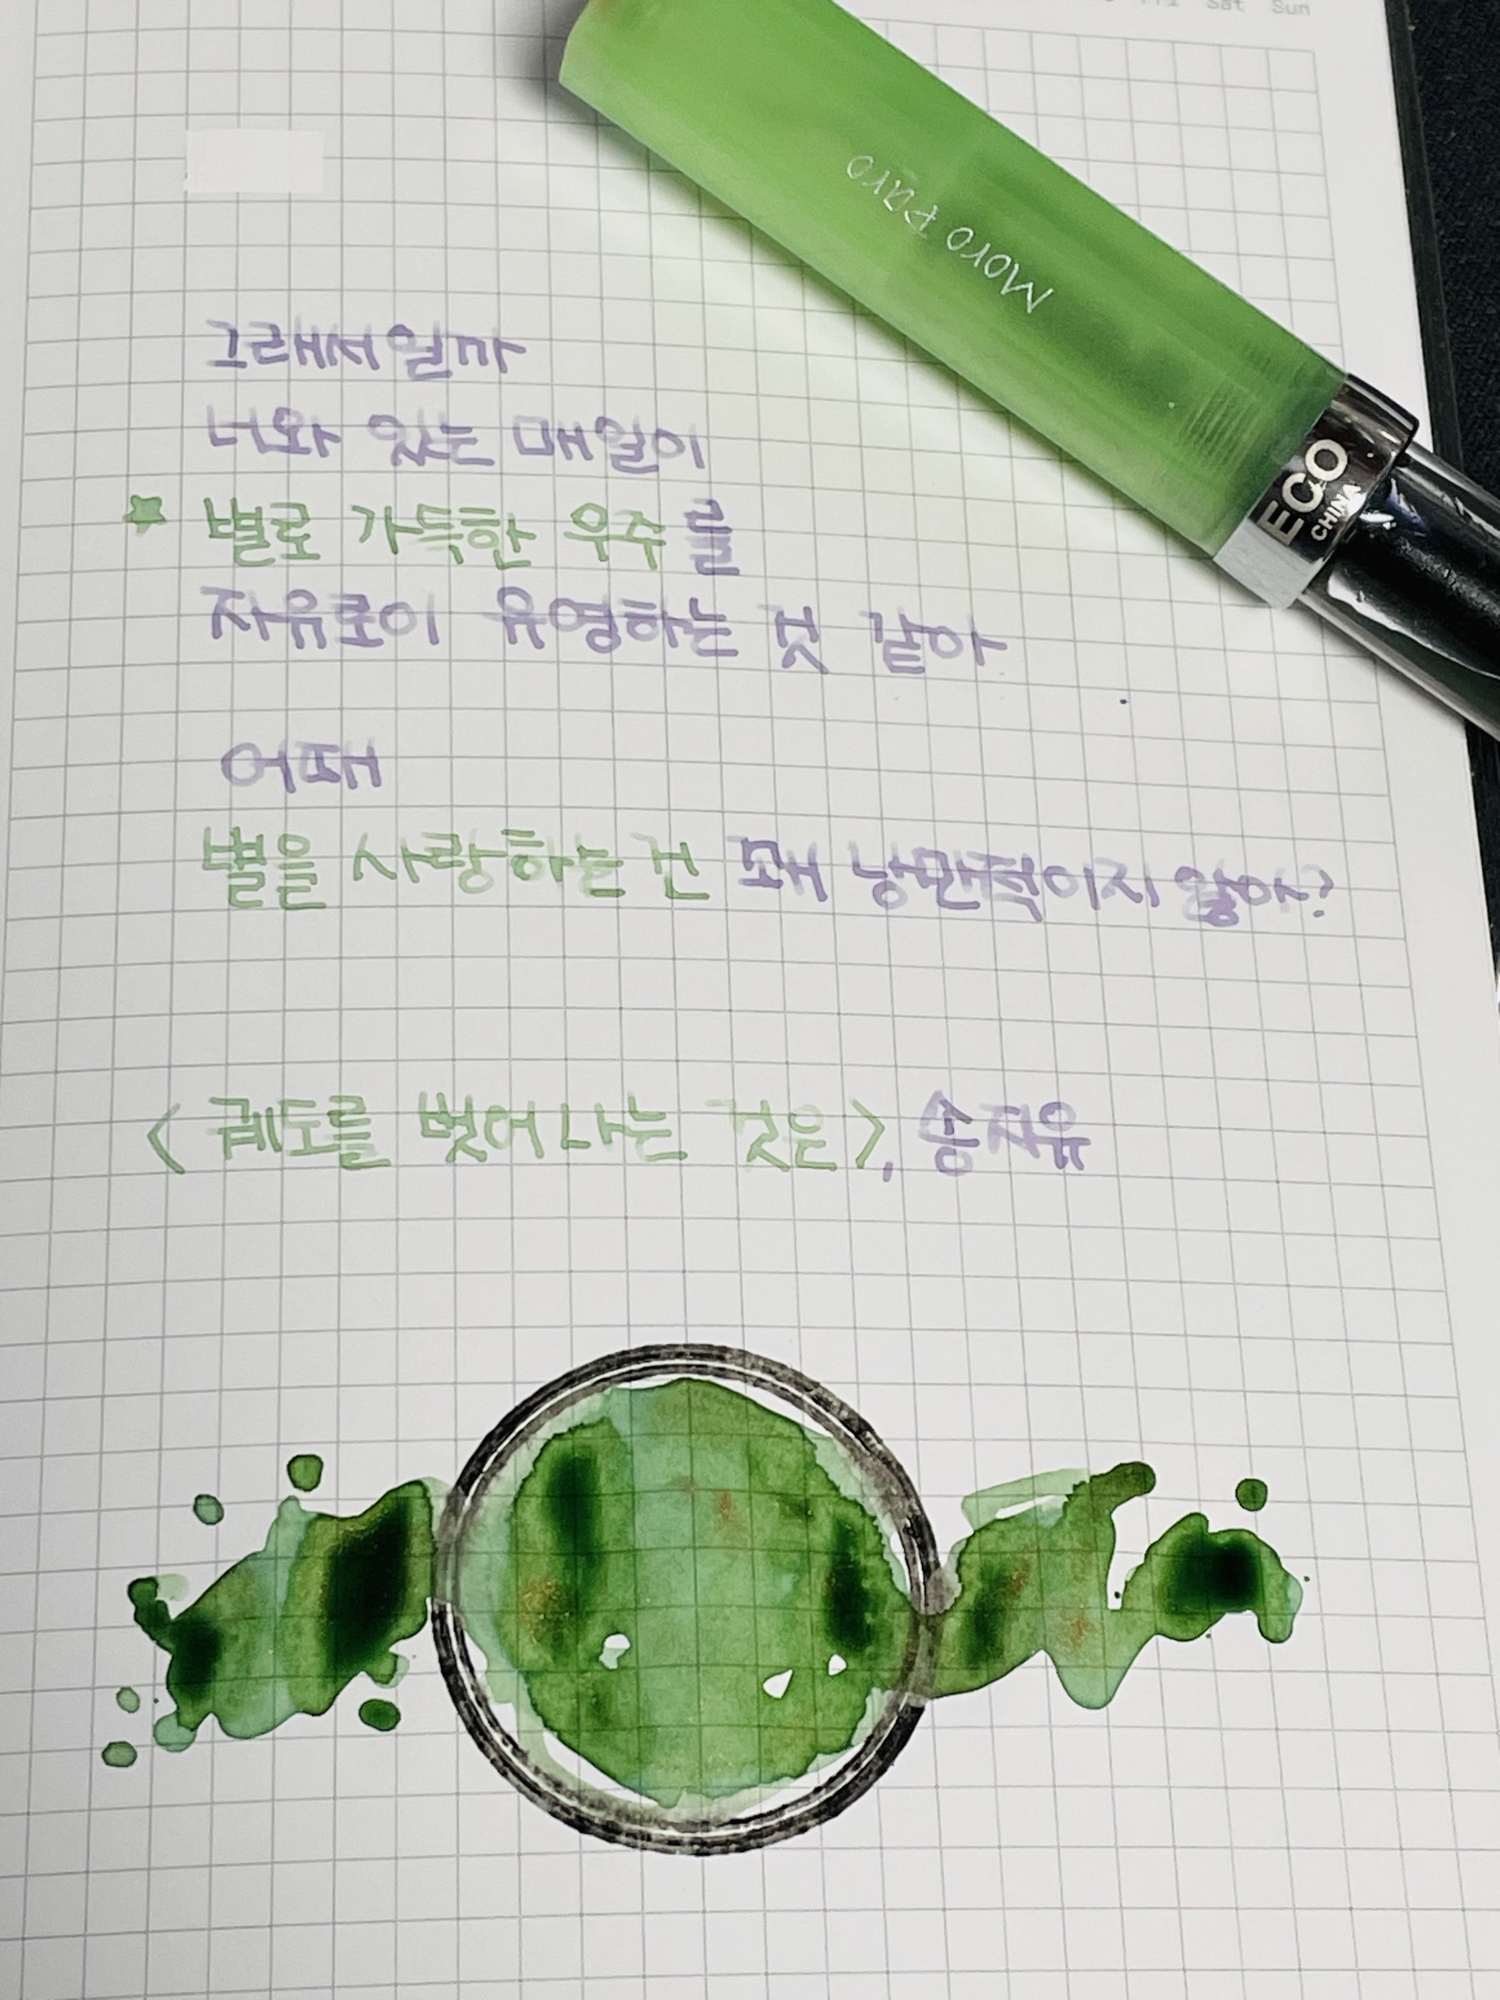 Fri Sat Sun
Moro Paro
ECO
CHINA
그래서일까
너와 있는 매일이
별로 가득한 우주를
자유로이 유영하는 것 같아
어때
별을 사랑하는 건 꽤 낭만적이지 않아?
<궤도를 벗어나는 것은>, 송자유